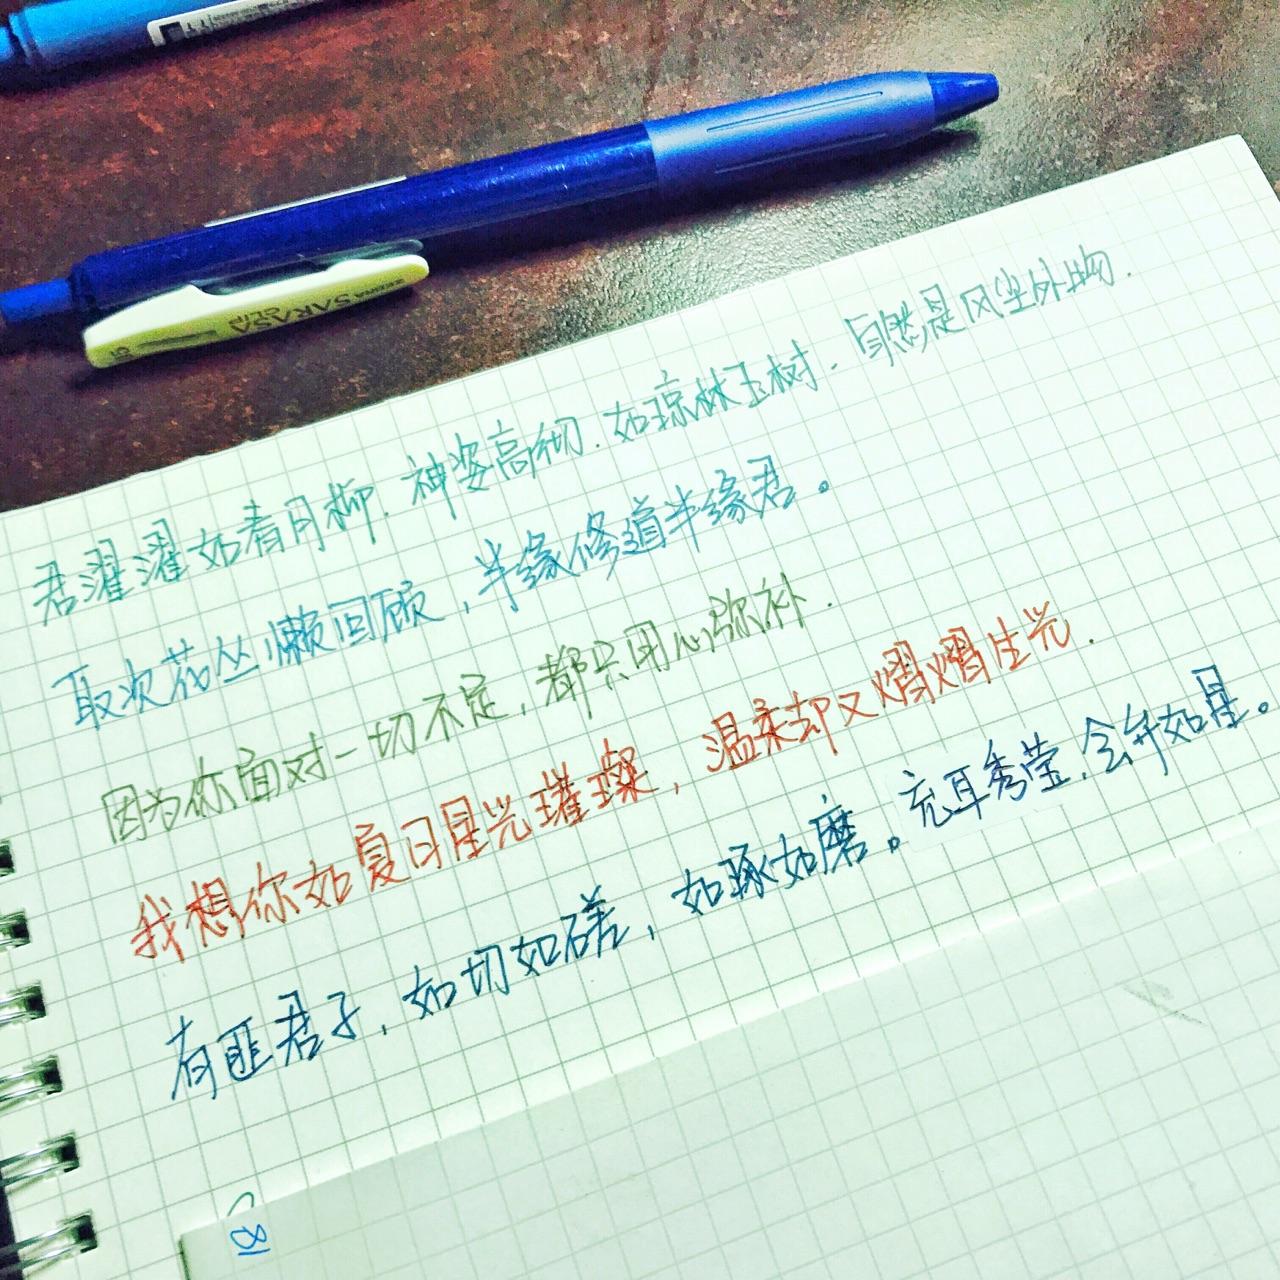 ZEBRA SARASA CLIP
君濯濯如春月柳.神姿高彻.如琼林玉树.自然是风尘外物.
取次花丛懒回顾,半缘修道半缘君。
因为你面对一切不定,都只用心弥补.
我想你如夏日星光璀璨,温柔却又熠熠生光.
有匪君子,如切如磋,如琢如磨。充耳秀莹,会弁如星。